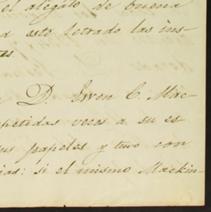 el alegato de buena
a este letrado las ins-
as
D. Iwon C. Mac-
petidas veces a su es
us papeles y tuvo con
ias: si el mismo Mackin-